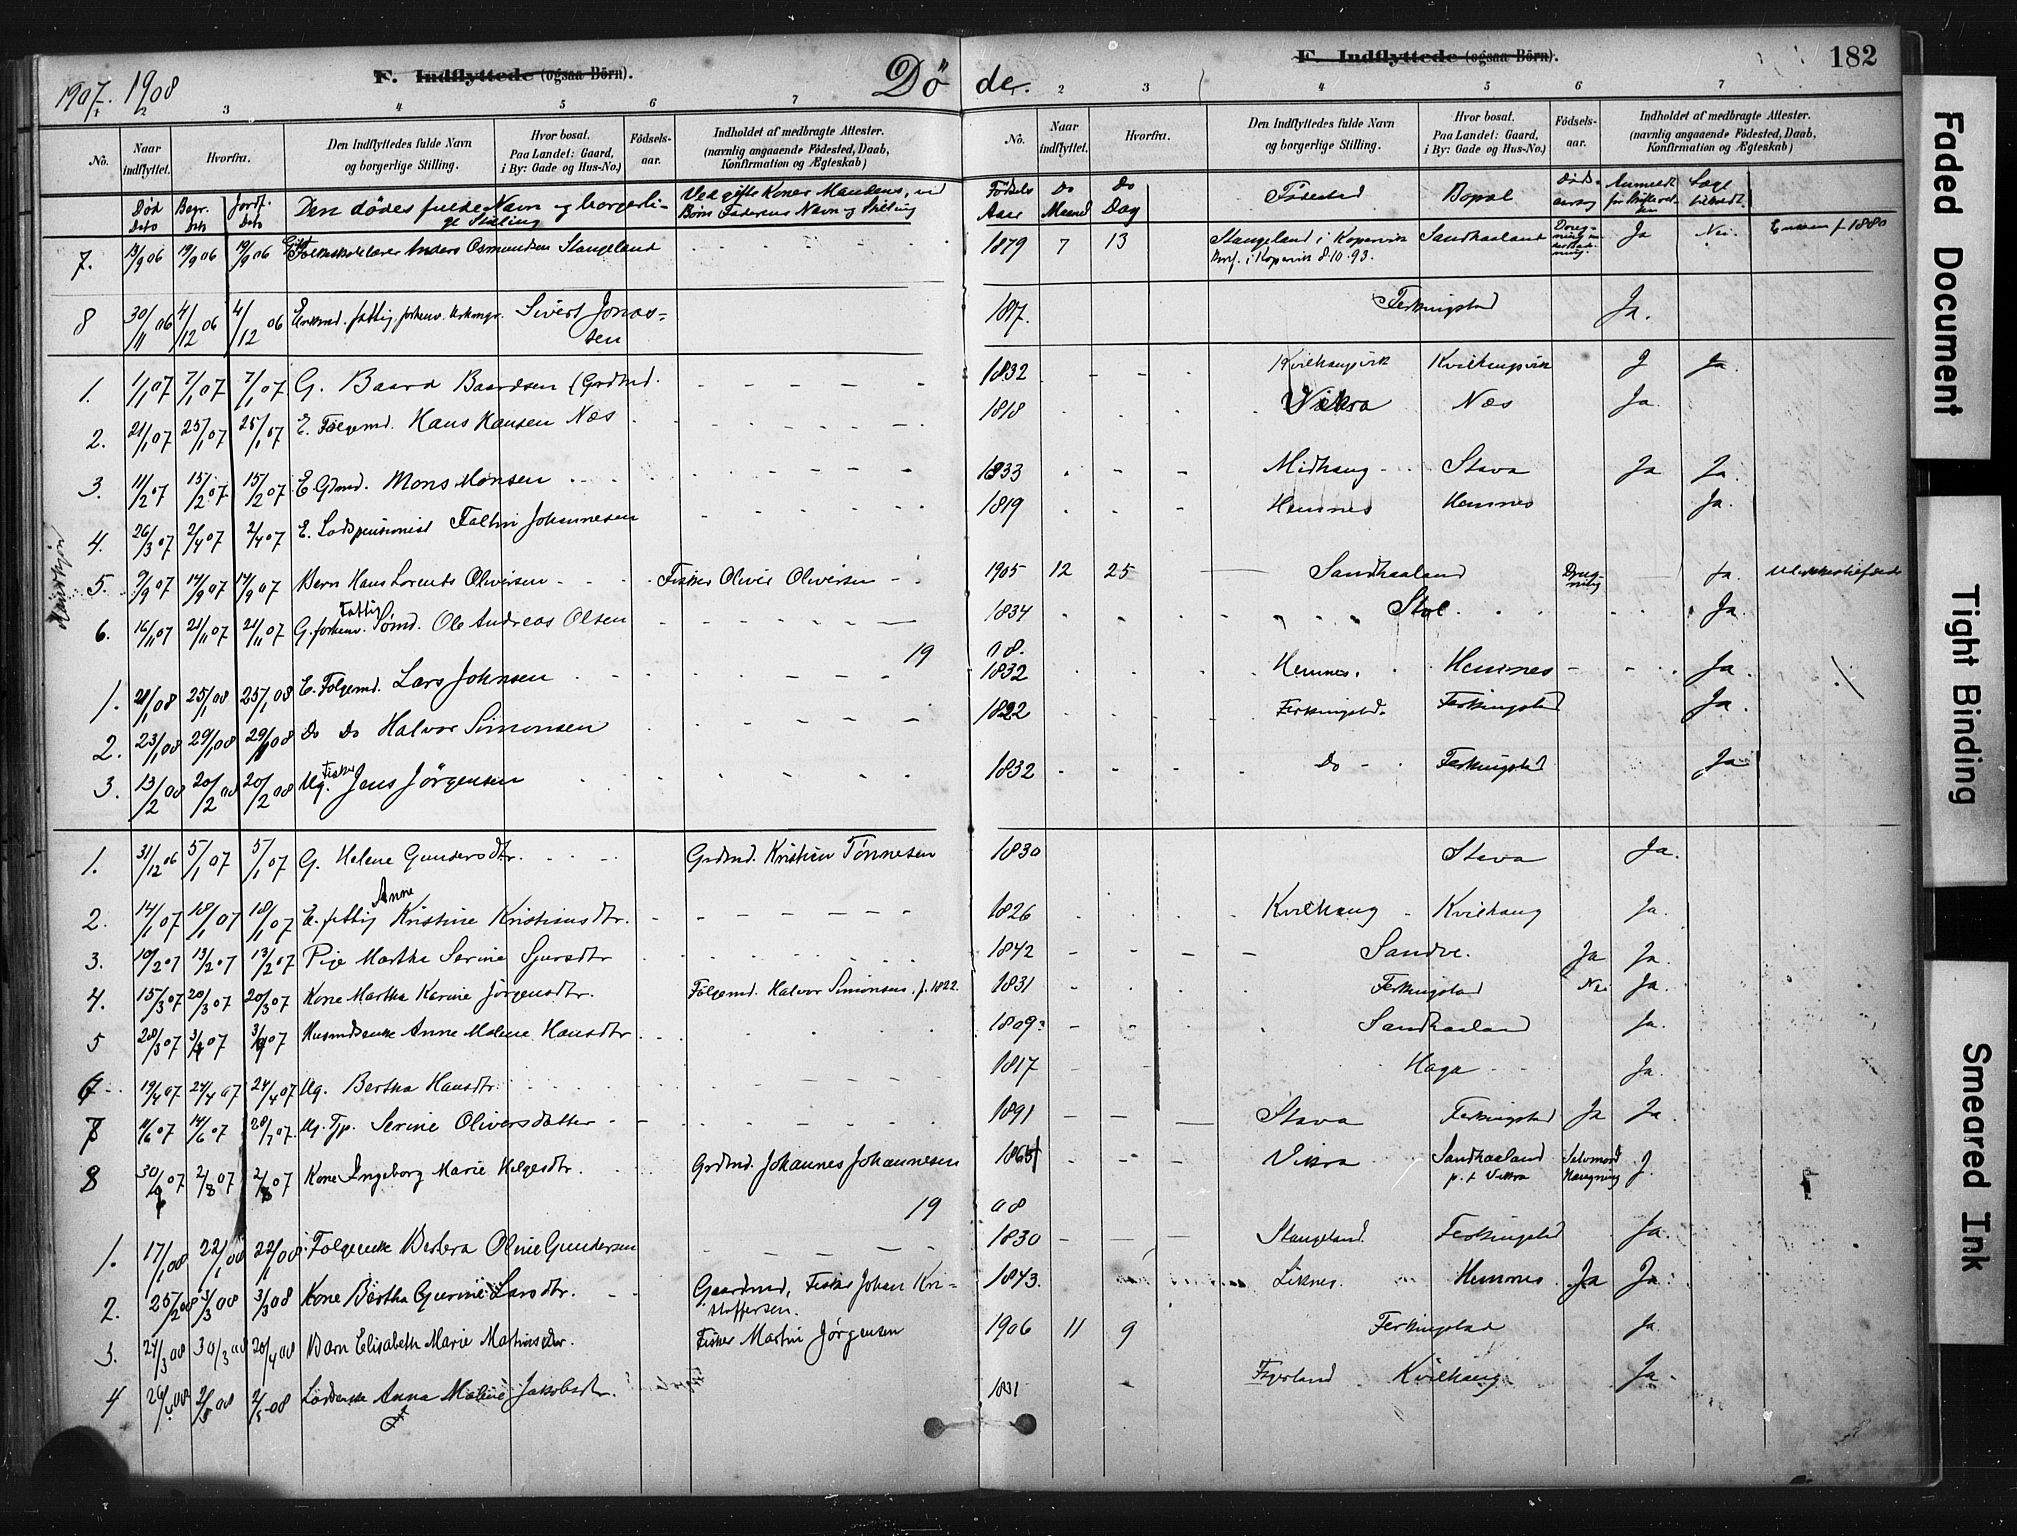 1907. 1908
F. Indflyttede (ogsaa Börn).
Dö
de.
F. Indflyttede (ogsaa Börn).
182
3 4 5 6 7
2 3 4 5 6 7
No. Naar indflyttet. Hvorfra. Den Indflyttedes fulde Navn og borgerlige Stilling. Hvor bosat. Paa Landet: Gaard, i By: Gade og Hus-No.) Födsels-aar. Indholdet af medbragte Attester. (navnlig angaaende Födested, Daab, Konfirmation og Ægteskab)
No. Naar indflyttet. Hvorfra. Den Indflyttedes fulde Navn og borgerlige Stilling. Hvor bosat. Paa Landet: Gaard, i By: Gade og Hus-No.) Födsels-aar. Indholdet af medbragte Attester. (navnlig angaaende Födested, Daab, Konfirmation og Ægteskab)
Död dato Begr. dato Jordf. dato Den dödes fulde Navn og borgerlige Stilling Ved gifte Koner Mandens, ved Börn Faderens Navn og Stilling
Födsels Aar Do Maaned Do Dag Födested Bopæl Dödsaarsag Anmeldt for Skifteretten Læge tilkaldt
7. 13/9 06 19/9 06 19/9 06 Folkeskolelærer Anders Osmundsen Stangeland
1879 7 13 Stangeland i Kopervik Sandhaaland Ja Nei
Konf. i Kopervik 8.10.93.
8 30/11 06 4/12 06 4/12 06 Enkmd. fattig, forhenv. Sivert Jonassen
Ferkingstad Ja.
1. 1/1 07 7/1 07 7/1 07 G. Baard Baardsen (Grdmd. 1832 Kvilhaugvik Kvilhaugvik J Ja.
2. 21/1 07 25/1 07 25/1 07 E. Følgemd. Hans Hansen Næs 1818 Vikra Næs Ja.
3. 11/2 07 15/2 07 15/2 07 E. Gdmd. Mons Monsen 1833 Midhaug Stava Ja Ja.
4. 26/3 07 2/4 07 2/4 07 E. Lodspensionist Faltin Johannesen 1819 Hemnes Hemnes Ja.
5. 9/9 07 14/9 07 14/9 07 Barn Hans Lorents Oliversen Fisker Oliver Oliversen 1905 12 25 Sandhaaland Drukning Ja. Ulykkestilfælde
6. 16/11 07 21/11 07 21/11 07 G. forhenv. fattig Sømd. Ole Andreas Olsen 1834 Stol Ja.
19 08.
1. 21/1 08 25/1 08 25/1 08 E. Følgemd. Lars Johnsen 1832 Hemnes. Hemnes Ja.
2. 23/1 08 29/1 08 29/1 08 Do Do Halvor Simonsen 1822 Ferkingstad. Ferkingstad Ja.
3. 13/2 08 20/2 08 20/2 08 Ug. Fisker Jens Jörgensen 1832 Do Ferkingstad Ja
1. 31/12 06 5/1 07 5/1 07 G. Helene Gundersdtr. Grdmd. Kristian Tönnesen 1830 Stava Ja.
2. 14/1 07 18/1 07 18/1 07 E. fattig Anne Kristine Kristiansdtr. 1826 Kvilhaug Kvilhaug Ja.
3. 10/2 07 13/2 07 13/2 07 Pige Martha Serine Sjursdtr 1842 Sandve. Ja Ja.
4. 15/3 07 20/3 07 20/3 07 Kone Martha Karine Jörgensdtr. Følgemd. Halvor Simonsen f. 1822. 1831 Ferkingstad Nei Ja.
5 28/3 07 3/4 07 3/4 07 Husmdsenke Anne Malene Hansdtr 1809 Sandhaaland Ja.
6 19/4 07 24/4 07 24/4 07 Ug. Bertha Hansdtr. 1817 Haga Ja.
7 14/6 07 28/7 07. Ug. Tjp. Serine Oliversdatter 1891 Stava Ferkingstad Ja Ja.
8 30/7 07 2/8 07 2/8 07 Kone Ingeborg Marie Helgesdtr. Grdmd. Johannes Johannesen Vikra Sandhaaland p. t. Vikra Selvmord Hængning J.
19 08
1. 17/1 08 22/1 08 22/1 08 Følgeenke Berta Oline Gundersen 1830 Stangeland. Ferkingstad Ja.
2. 25/2 08 3/3 08 3/3 08 Kone Bertha Gurine Larsdtr. Gaardmd, Fisker Johan Kristoffersen. 1843. Liknes. Hemnes. Ja Ja.
3. 24/3 08 30/3 08 20/4 08 Barn Elisabeth Marie Martinsdtr. Fisker Martin Jörgensen 1906 11 9 Ferkingstad Ja.
4 26/4 08 2/5 08 2/5 08 Anna Malene Jakobsdtr. Kvilhaug Ja.
Faded Document
Tight Binding
Smeared Ink